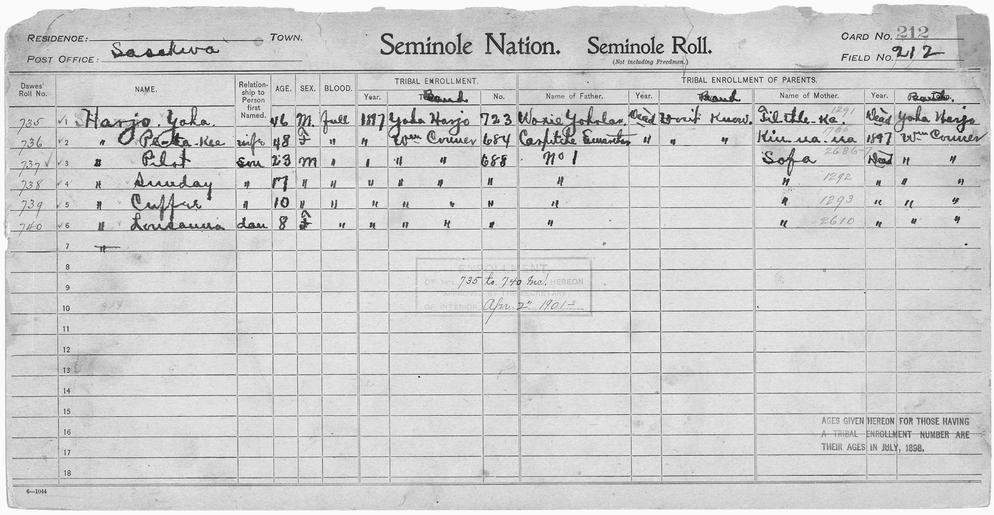 RESIDENCE: TOWN. Seminole Nation. Seminole Roll. CARD NO. 212
POST OFFICE: Sasakwa (Not including Freedmen.) FIELD NO. 212
Dawes' Roll No. NAME. Relationship to Person first Named. AGE. SEX. BLOOD. TRIBAL ENROLLMENT. TRIBAL ENROLLMENT OF PARENTS.
Year. Band No. Name of Father. Year. Band Name of Mother. Year. Band.
735 ✓1 Harjo Yaha 46 M full 1897 Yaha Harjo 723 Woxie Yoholar Dead Don't Know Filithle-Ka 1291 Dead Yaha Harjo
736 ✓2 " wife 48 F " " Wm Conner 684 " " 1897 Wm Conner
737 ✓3 " Pilot son 23 M " " " 688 No 1 Sofa 2686 Dead " "
738 ✓4 " Sunday " 17 " " " " " " " " 1292 " " "
739 ✓5 " Cuffee " 10 " " " " " " " 1293 " " "
740 ✓6 " Louisanna dau 8 F " " " " " " " 2610 " " "
7 "
8
ENROLLMENT
9 OF NOS. 735 to 740 Inc! HEREON
10 OF INTERIOR Apr. 2" 1901
11
12
13
14
15 AGES GIVEN HEREON FOR THOSE HAVING
16 A TRIBAL ENROLLMENT NUMBER ARE
17 THEIR AGES IN JULY, 1898.
18
6—1044